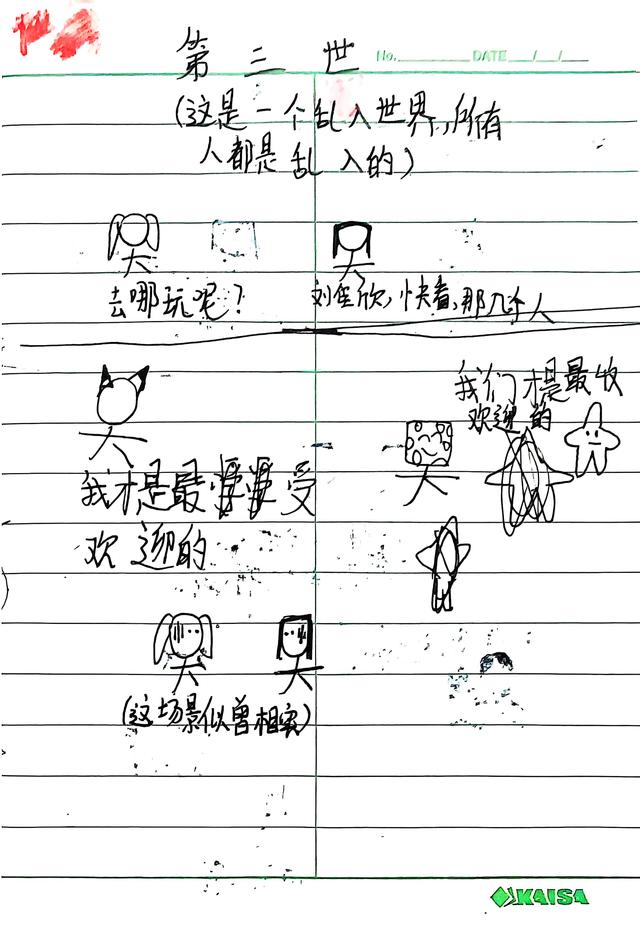 第三世
No. DATE / /
(这是一个乱入世界,所有
人都是乱入的)
去哪玩呢?
刘佳欣,快看,那几个人
我们才是最收
欢迎的
我才是最受
欢迎的
(这场景似曾相实)
KAISA